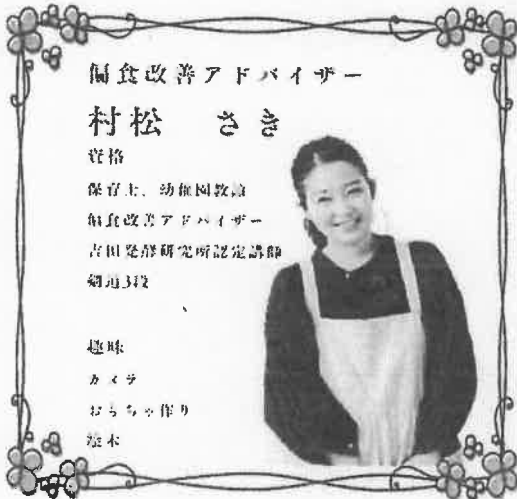 偏食改善アドバイザー
村松 さき
資格
保育士、幼稚園教諭
偏食改善アドバイザー
吉田発酵研究所認定講師
剣道3段
趣味
カメラ
おもちゃ作り
絵本